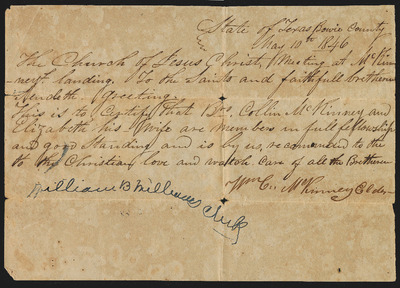 State of Texas Bowie County
May 10th 1846
The Church of Jesus Christ, Meeting at McKin
-neys landing. To the Saints and faithfull bretheren
Sendeth, Greeting
This is to Certify that Bro. Collin McKinney and
Elizabeth his Wife are members in full fellowship
and good Standing and is by us, recomended to the
to the Christian love and watch care of all the Bretheren
Wm C. McKinney Elder
William B Williams Clerk